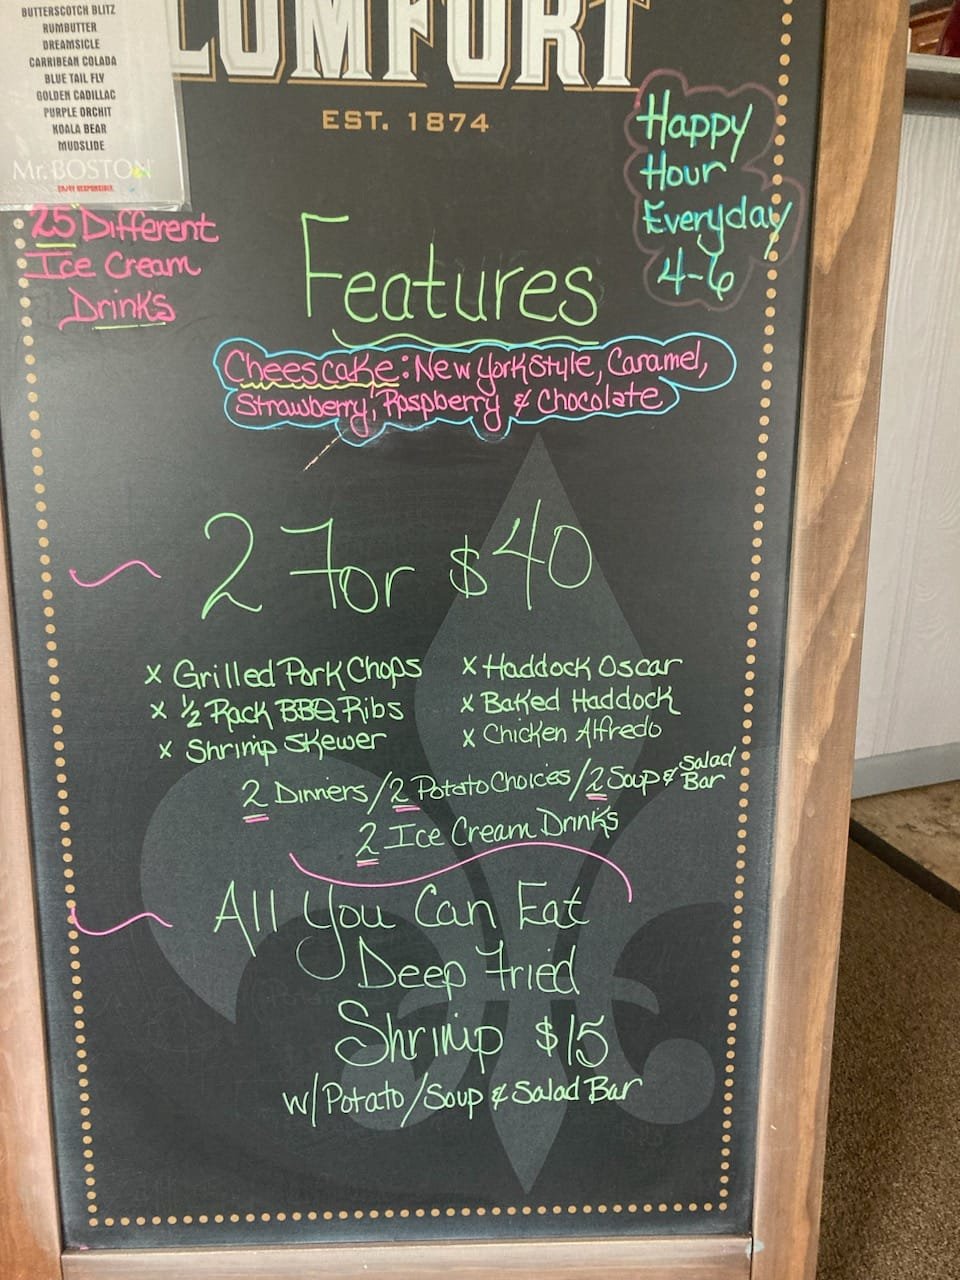 BUTTERSCOTCH BLITZ
RUMBUTTER
DREAMSICLE
CARRIBEAN COLADA
BLUE TAIL FLY
GOLDEN CADILLAC
PURPLE ORCHIT
KOALA BEAR
MUDSLIDE
Mr. BOSTON
ENJOY RESPONSIBLY.
COMFORT
EST. 1874
Happy
Hour
Everyday
4-6
25 Different
Ice Cream
Drinks
Features
Cheescake: New York Style, Caramel,
Strawberry, Raspberry & Chocolate
2 for $40
x Grilled Pork Chops
x 1/2 Rack BBQ Ribs
x Shrimp Skewer
x Haddock Oscar
x Baked Haddock
x Chicken Alfredo
2 Dinners/2 Potato Choices/2 Soup & Salad Bar
2 Ice Cream Drinks
All You Can Eat
Deep Fried
Shrimp $15
w/Potato/Soup & Salad Bar